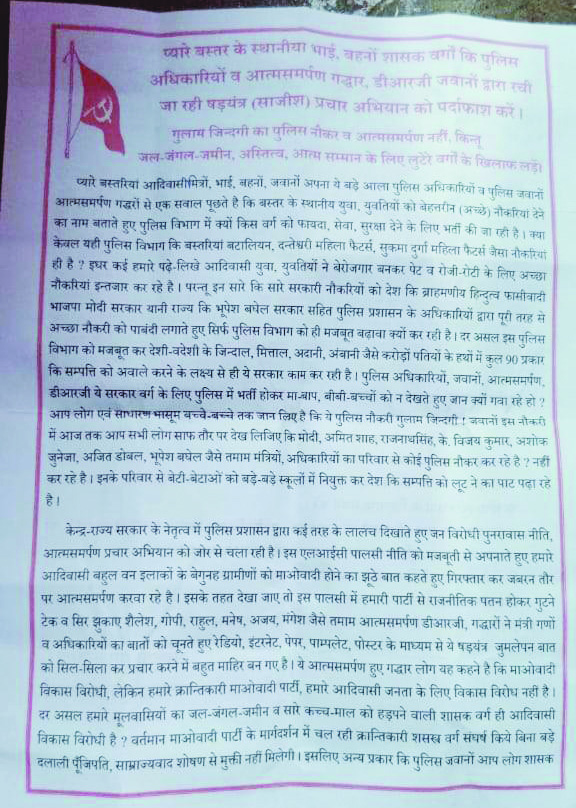 प्यारे बस्तर के स्थानीया भाई, बहनों शासक वर्गों कि पुलिस
अधिकारियों व आत्मसमर्पण गद्दार, डीआरजी जवानों द्वारा रची
जा रही षड़यंत्र (साजीश) प्रचार अभियान को पर्दाफाश करें।
गुलाम जिन्दगी का पुलिस नौकर व आत्मसमर्पण नहीं, किन्तू
जल-जंगल-जमीन, अस्तित्व, आत्म सम्मान के लिए लुटेरे वर्गों के खिलाफ लड़े।
प्यारे बस्तरियां आदिवासीमित्रों, भाई, बहनों, जवानों अपना ये बड़े आला पुलिस अधिकारियों व पुलिस जवानों
आत्मसमर्पण गद्दरों से एक सवाल पूछते है कि बस्तर के स्थानीय युवा, युवतियों को बेहत्तरीन (अच्छे) नौकरियां देने
का नाम बताते हुए पुलिस विभाग में क्यों किस वर्ग को फायदा, सेवा, सुरक्षा देने के लिए भर्ती की जा रही है। क्या
केवल यही पुलिस विभाग कि बस्तरियां बटालियन, दन्तेश्वरी महिला फैटर्स, सुकमा दुर्गा महिला फैटर्स जैसा नौकरियां
ही है ? इधर कई हमारे पढ़े-लिखे आदिवासी युवा, युवतियों ने बेरोजगार बनकर पेट व रोजी-रोटी के लिए अच्छा
नौकरियां इन्तजार कर रहे है। परन्तू इन सारे कि सारे सरकारी नौकरियों को देश कि ब्राहमणीय हिन्दुत्व फासीवादी
भाजपा मोदी सरकार यानी राज्य कि भूपेश बघेल सरकार सहित पुलिस प्रशासन के अधिकारियों द्वारा पूरी तरह से
अच्छा नौकरी को पाबंदी लगाते हुए सिर्फ पुलिस विभाग को ही मजबूत बढ़ावा क्यों कर रही है। दर असल इस पुलिस
विभाग को मजबूत कर देशी-वदेशी के जिन्दाल, मित्ताल, अदानी, अंबानी जैसे करोड़ों पतियों के हथों में कुल 90 प्रकार
कि सम्पत्ति को अवाले करने के लक्ष्य से ही ये सरकार काम कर रही है। पुलिस अधिकारियों, जवानों, आत्मसमर्पण,
डीआरजी ये सरकार वर्ग के लिए पुलिस में भर्ती होकर मा-बाप, बीबी-बच्चों को न देखते हुए जान क्यों गवा रहे हो ?
आप लोग एवं साधारण मासूम बच्चे-बच्चे तक जान लिए है कि ये पुलिस नौकरी गुलाम जिन्दगी ! जवानों इस नौकरी
में आज तक आप सभी लोग साफ तौर पर देख लिजिए कि मोदी, अमित शाह, राजनाथसिंह, के. विजय कुमार, अशोक
जुनेजा, अजित डोबल, भूपेश बघेल जैसे तमाम मंत्रियों, अधिकारियों का परिवार से कोई पुलिस नौकर कर रहे है ? नहीं
कर रहे है। इनके परिवार से बेटी-बेटाओं को बड़े-बड़े स्कूलों में नियुक्त कर देश कि सम्पत्ति को लूट ने का पाट पढ़ा रहे
है।
केन्द्र-राज्य सरकार के नेतृत्व में पुलिस प्रशासन द्वारा कई तरह के लालच दिखाते हुए जन विरोधी पुनरावास नीति,
आत्मसमर्पण प्रचार अभियान को जोर से चला रही है। इस एलआईसी पालसी नीति को मजबूती से अपनाते हुए हमारे
आदिवासी बहुल वन इलाकों के बेगुनह ग्रामीणों को माओवादी होने का झूठे बात कहते हुए गिरफ्तार कर जबरन तौर
पर आत्मसमर्पण करवा रहे है। इसके तहत देखा जाए तो इस पालसी में हमारी पार्टी से राजनीतिक पतन होकर गुटने
टेक व सिर झुकाए शैलेश, गोपी, राहुल, मनेष, अजय, मंगेश जैसे तमाम आत्मसमर्पण डीआरजी, गद्धारों ने मंत्री गणों
व अधिकारियों का बातों को चूनते हुए रेडियो, इंटरनेट, पेपर, पाम्पलेट, पोस्टर के माध्यम से ये षड़यंत्र जुमलेपन बात
को सिल-सिला कर प्रचार करने में बहुत माहिर बन गए है। ये आत्मसमर्पण हुए गद्धार लोग यह कहने है कि माओवादी
विकास विरोधी, लेकिन हमारे क्रान्तिकारी माओवादी पार्टी, हमारे आदिवासी जनता के लिए विकास विरोध नहीं है।
दर असल हमारे मूलवासियों का जल-जंगल-जमीन व सारे कच्च-माल को हड़पने वाली शासक वर्ग ही आदिवासी
विकास विरोधी है ? वर्तमान माओवादी पार्टी के मार्गदर्शन में चल रही क्रान्तिकारी शसस्त्र वर्ग संघर्ष किये बिना बड़े
दलाली पूँजिपति, साम्राज्यवाद शोषण से मुक्ती नहीं मिलेगी। इसलिए अन्य प्रकार कि पुलिस जवानों आप लोग शासक